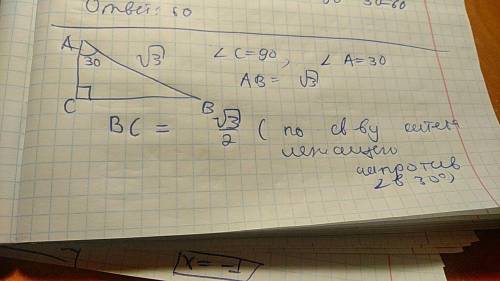 Ответ: 60
A
30
√3
∠ C=90, ∠ A=30
AB= √3
C
B
BC = √3/2 ( по св ву катета
лежащего
напротив
∠ в 30°)
x = -1